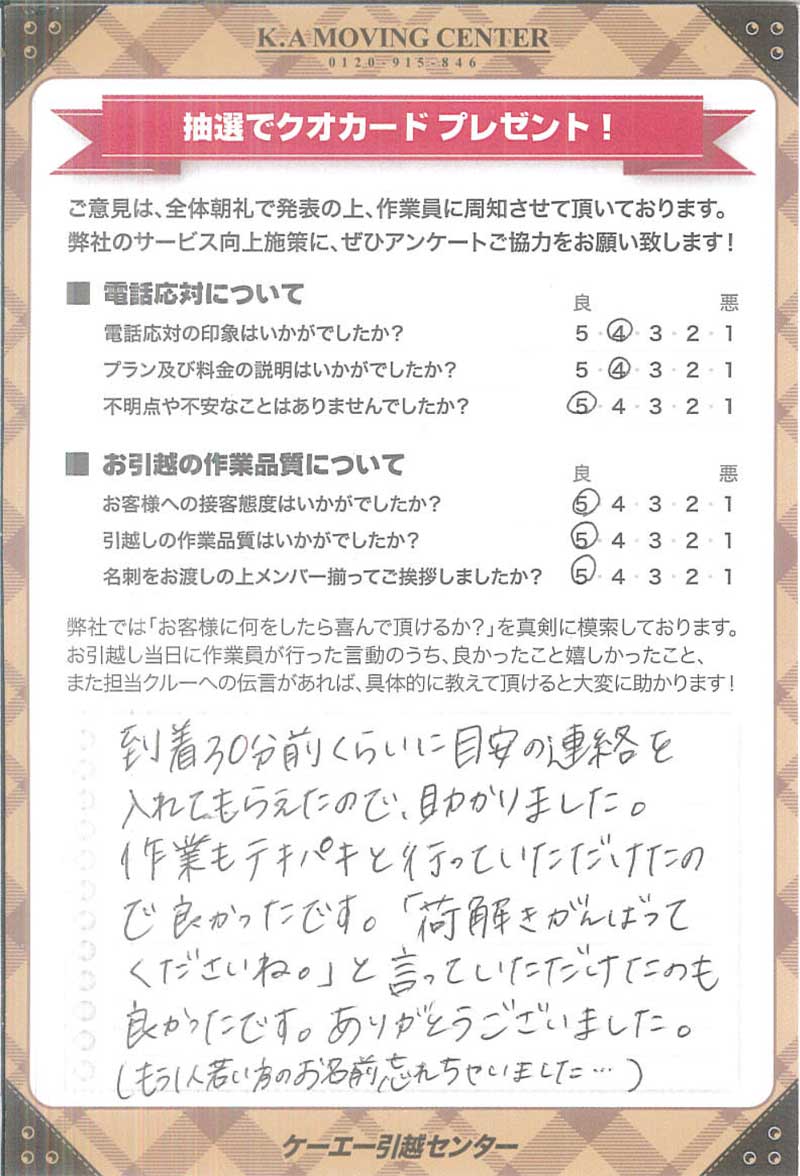 K.A MOVING CENTER
0120-915-846
抽選でクオカード プレゼント！
ご意見は、全体朝礼で発表の上、作業員に周知させて頂いております。
弊社のサービス向上施策に、ぜひアンケートご協力をお願い致します！
■ 電話応対について
良 悪
電話応対の印象はいかがでしたか？ 5・4・3・2・1
プラン及び料金の説明はいかがでしたか？ 5・4・3・2・1
不明点や不安なことはありませんでしたか？ 5・4・3・2・1
■ お引越の作業品質について
良 悪
お客様への接客態度はいかがでしたか？ 5・4・3・2・1
引越しの作業品質はいかがでしたか？ 5・4・3・2・1
名刺をお渡しの上メンバー揃ってご挨拶しましたか？ 5・4・3・2・1
弊社では「お客様に何をしたら喜んで頂けるか？」を真剣に模索しております。
お引越し当日に作業員が行った言動のうち、良かったこと嬉しかったこと、
また担当クルーへの伝言があれば、具体的に教えて頂けると大変に助かります！
到着30分前くらいに目安の連絡を
入れてもらえたので、助かりました。
作業もテキパキと行っていただけたの
で良かったです。「荷解きがんばって
くださいね。」と言っていただけたのも
良かったです。ありがとうございました。
(もう1人若い方のお名前忘れちゃいました…)
ケーエー引越センター